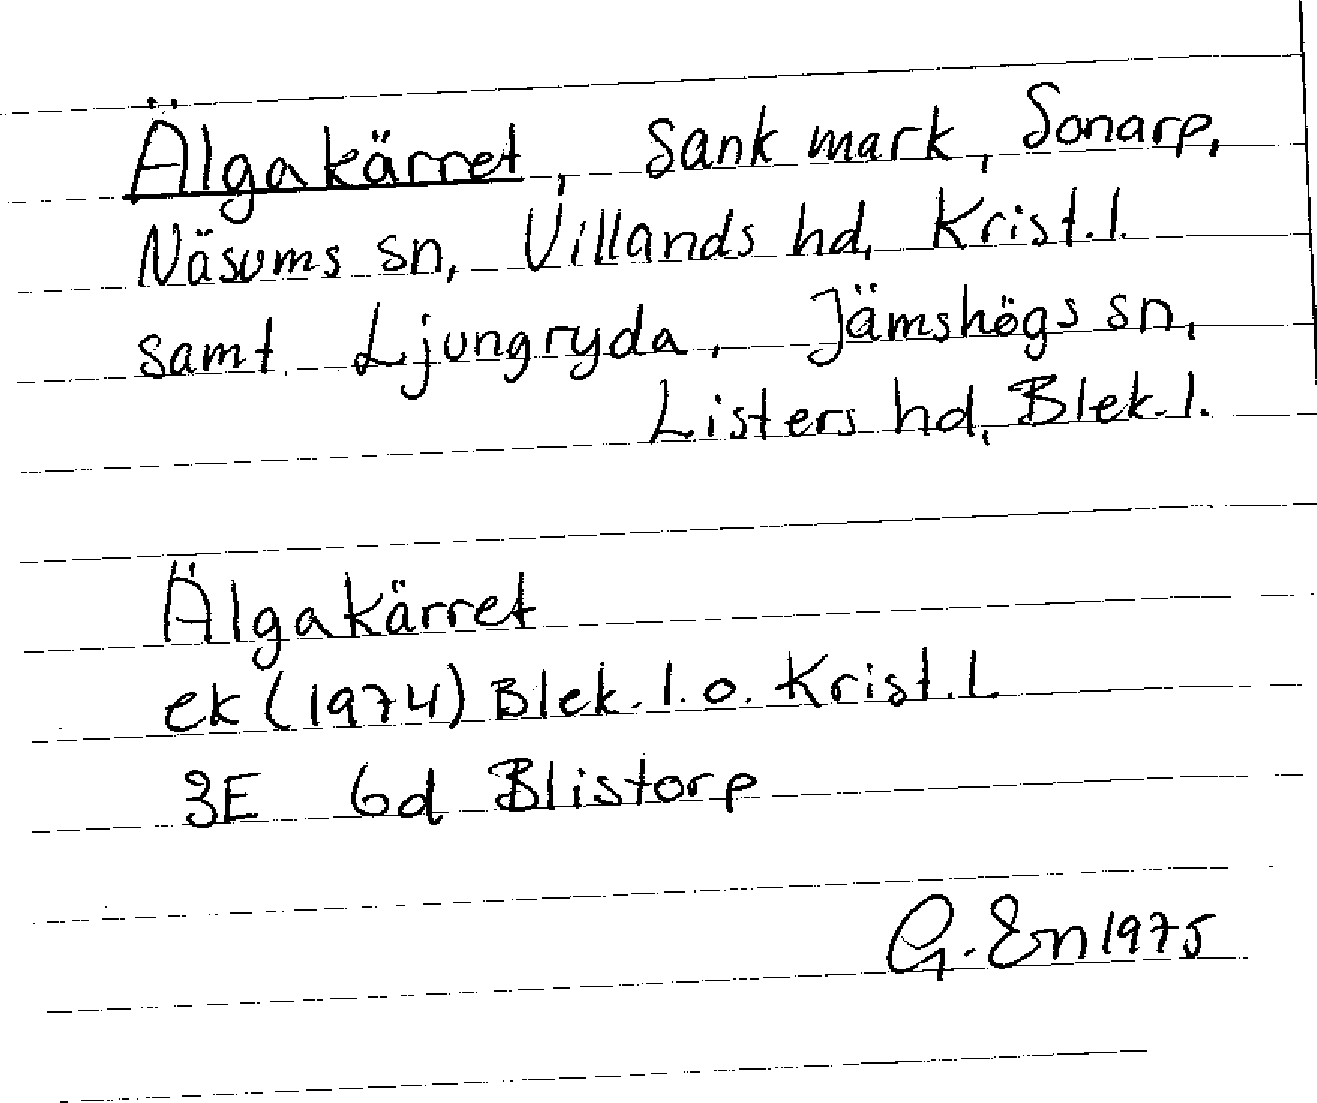 Älgakärret, Sank mark, Sonarp,
Näsums sn, Villands hd, Krist.l.
samt Ljungryda, Jämshögs sn,
Listers hd, Blek.l.
Älgakärret
ek (1974) Blek.l. o. Krist.l
3E 6d Blistorp
G. En 1975